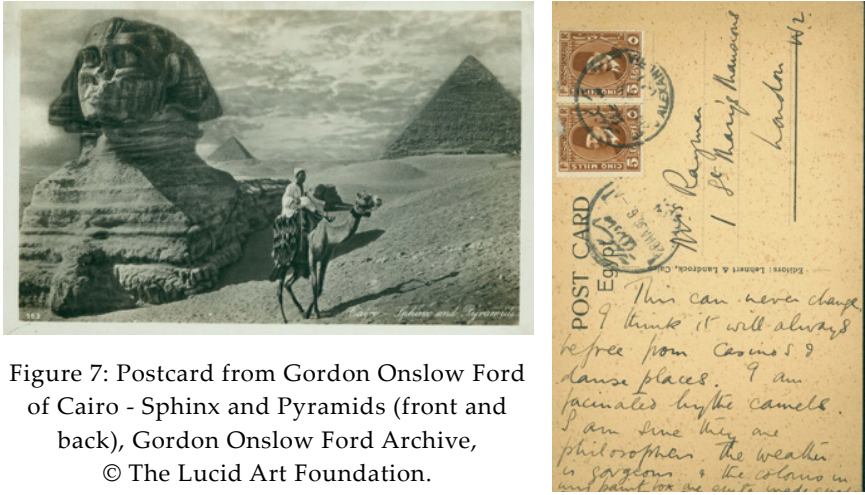 163
Cairo - Sphinx and Pyramids
Figure 7: Postcard from Gordon Onslow Ford
of Cairo - Sphinx and Pyramids (front and
back), Gordon Onslow Ford Archive,
© The Lucid Art Foundation.
5
CINQ MILLS
5
CINQ MILLS
ALEXAN
Mrs Rayman
1 St Mary's Mansions
London W.2
POST CARD
Egypt
Editors: Lehnert & Landrock, Cairo
This can never change,
I think it will always
be free from Casinos &
danse places. I am
facinated by the camels
I am sure they are
philosophers the weather
is gorgeous & the colours in
paint box are quite